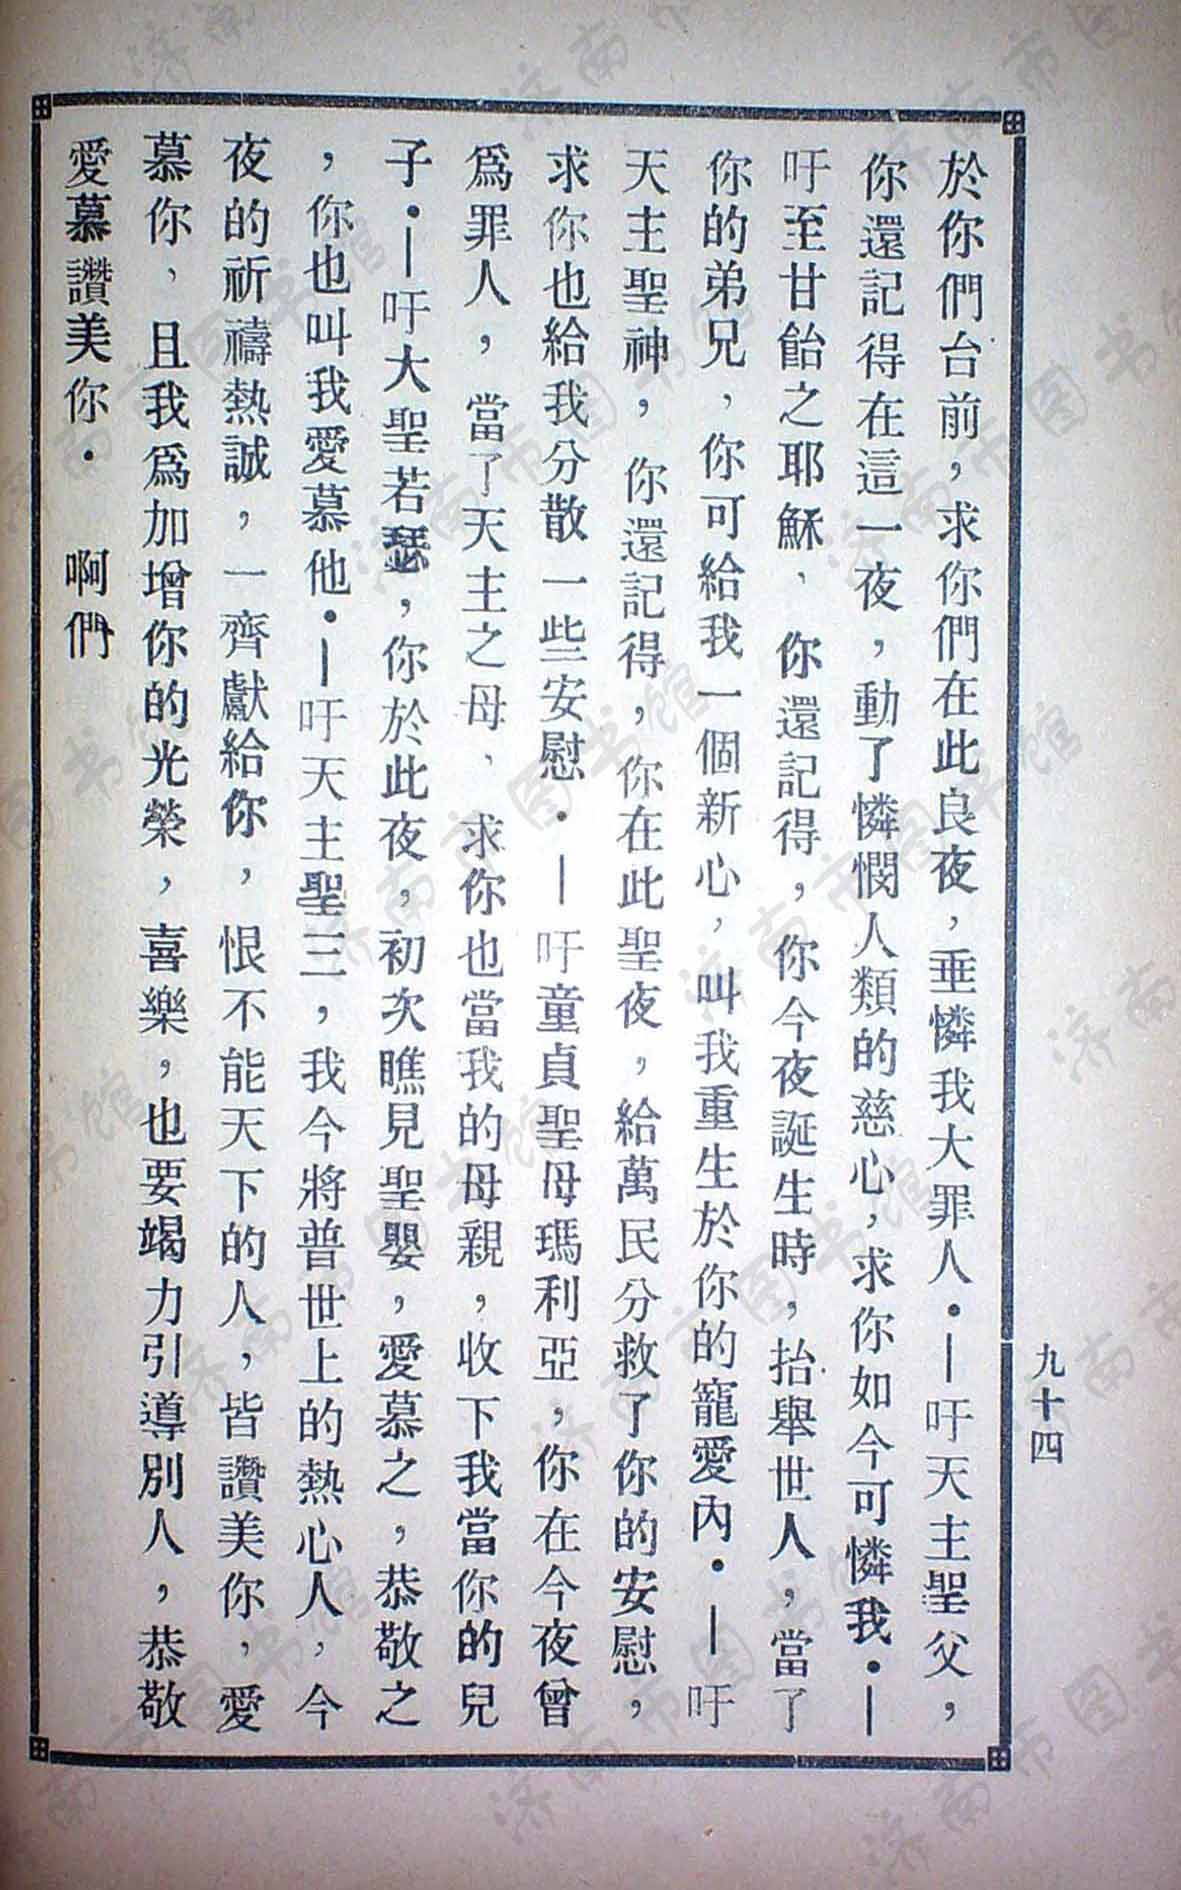 九十四
於你們台前，求你們在此良夜，垂憐我大罪人．—吁天主聖父，
你還記得在這一夜，動了憐憫人類的慈心，求你如今可憐我．—
吁至甘飴之耶穌、你還記得，你今夜誕生時，抬舉世人，當了
你的弟兄，你可給我一個新心，叫我重生於你的寵愛內．—吁
天主聖神，你還記得，你在此聖夜，給萬民分救了你的安慰，
求你也給我分散一些安慰．—吁童貞聖母瑪利亞，你在今夜曾
為罪人，當了天主之母、求你也當我的母親，收下我當你的兒
子．—吁大聖若瑟，你於此夜，初次瞧見聖嬰，愛慕之，恭敬之
，你也叫我愛慕他．—吁天主聖三，我今將普世上的熱心人，今
夜的祈禱熱誠，一齊獻給你，恨不能天下的人，皆讚美你，愛
慕你、且我為加增你的光榮，喜樂，也要竭力引導別人，恭敬
愛慕讚美你．　啊們
济南市图书馆